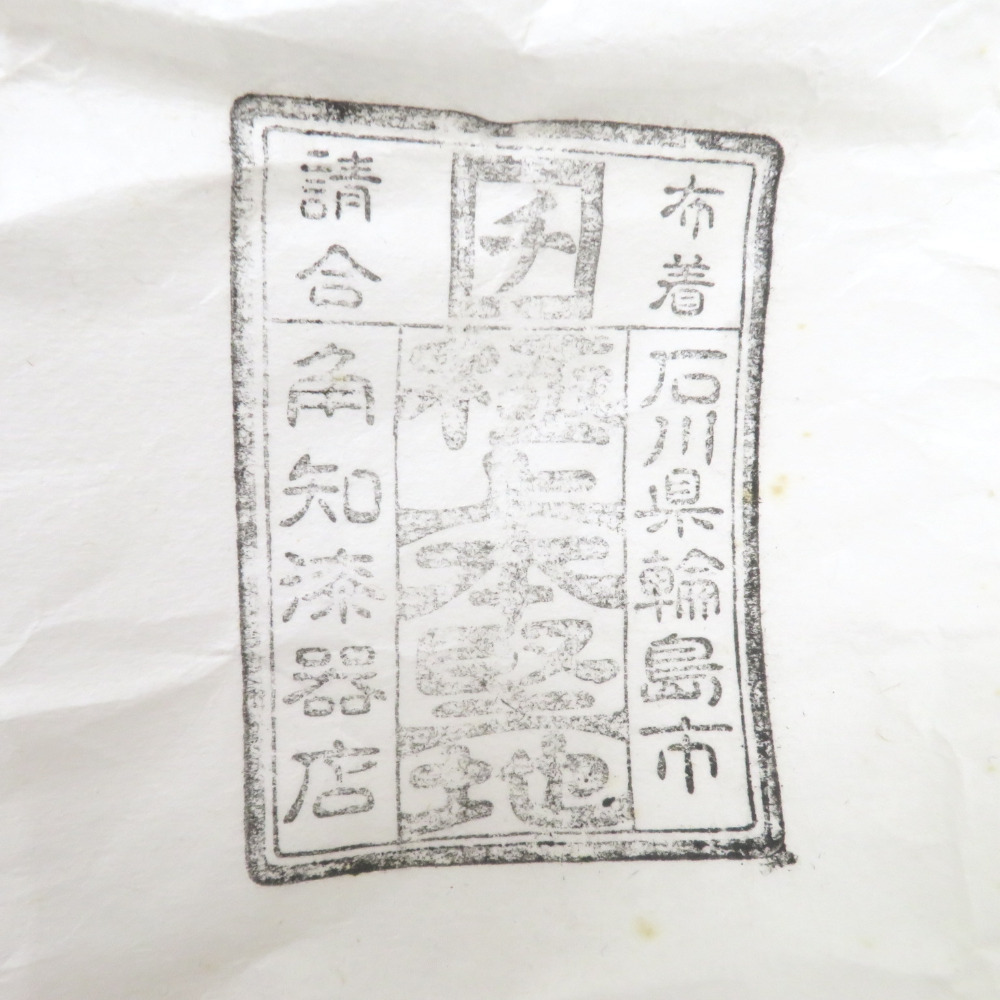 布着
チ
請合
石川県輪島市
極上本堅地
角知漆器店